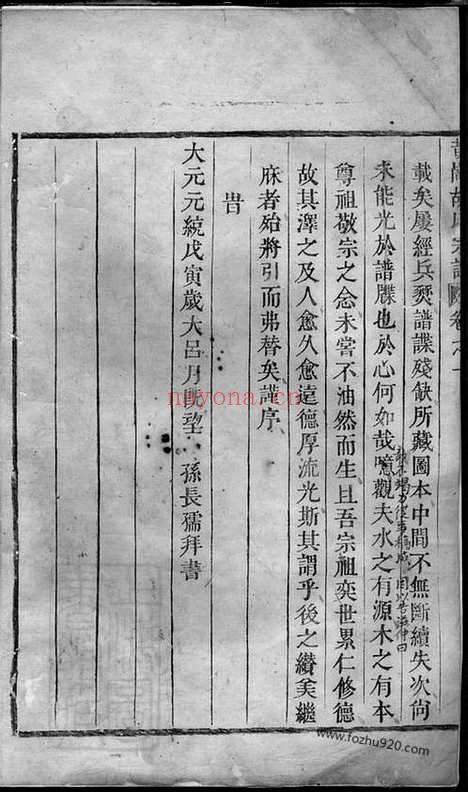 胡氏宗譜 卷之一
載矣屢經兵燹譜諜殘缺所藏圖本中間不無斷續失次尙
未能光於譜牒也於心何如哉噫觀夫水之有源木之有本
尊祖敬宗之念未嘗不油然而生且吾宗祖奕世累仁修德
故其澤之及人愈久愈遠德厚流光斯其謂乎後之纉美繼
庥者殆將引而弗替矣謹序
旹
大元元統戊寅歲大呂月旣望 孫長孺拜書
miyona.cn
www.fozhu920.com